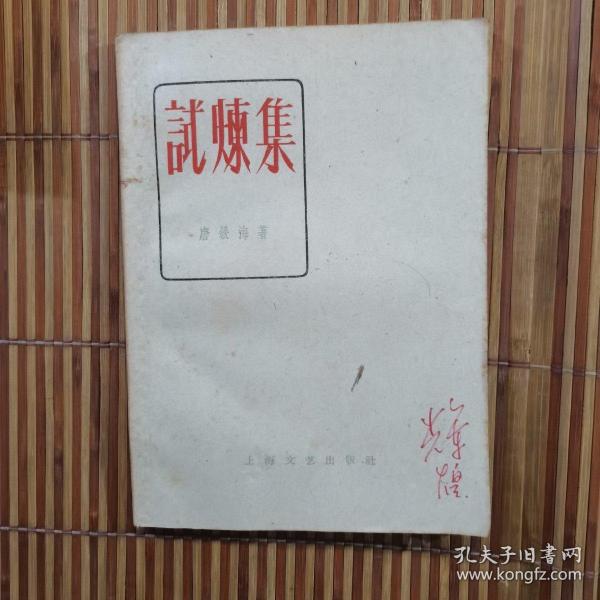 試煉集
唐弢海著
上海文艺出版社
辉煌
孔夫子旧書网
www.kongfz.com